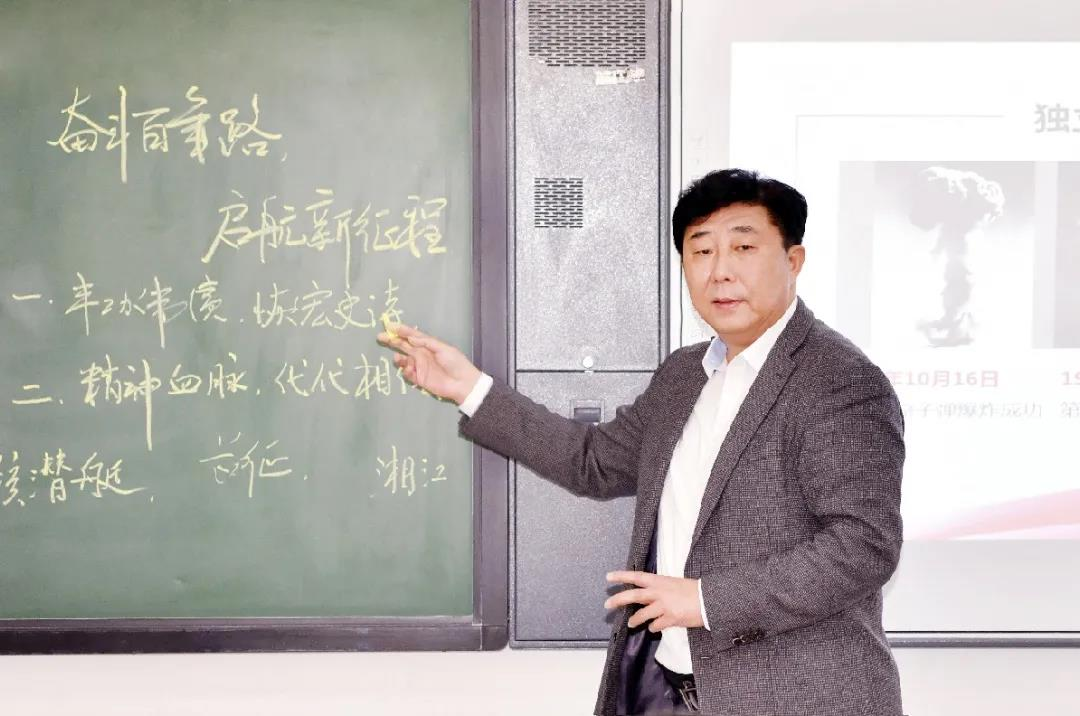 奋斗百年路,
启航新征程
一、丰功伟绩,恢宏史诗
二、精神血脉,代代相
核潜艇, 长征, 湘江
独立
年10月16日
子弹爆炸成功
19
第